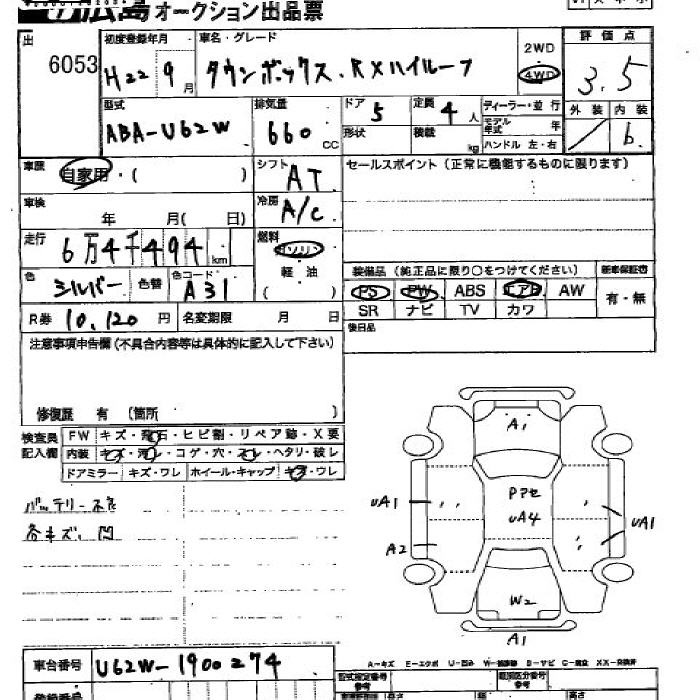 広島オークション出品票
出
6053
初度登録年月
H22 9月
車名・グレード
タウンボックス.RXハイルーフ
2WD
4WD
評価点
3.5
型式
ABA-U62W
排気量
660 CC
ドア 5
形状
定員 4 人
積載 kg
ディーラー・並行
モデル年式 年
ハンドル 左・右
外装 内装
/ b.
車歴
自家用・( )
シフト AT
セールスポイント(正常に機能するものに限ります)
車検
年 月( 日)
冷房 A/C
走行
6万4千494 km
燃料
ガソリン
軽油
( )
色 シルバー
色替
色コード A31
装備品(純正品に限り○をつけてください)
新車保証書
PS PW ABS エアB AW
有・無
SR ナビ TV カワ
R券 10,120 円
名変期限 月 日
後日品
注意事項申告欄(不具合内容等は具体的に記入して下さい)
修復歴 有(箇所 )
検査員記入欄
FW キズ・飛石・ヒビ割・リペア跡・X要
内装 キズ・汚レ・コゲ・穴・スレ・ヘタリ・破レ
ドアミラー キズ・ワレ ホイール・キャップ キズ・ワレ
バッテリー不良
各キズ、凹
A1
Pアセ
UA4
UA1
A2
UA1
W2
A1
車台番号 U62W-1900274
A-キズ E-エクボ U-凹み
型式指定番号
参考
類別区分番号
参考
長さ
高さ